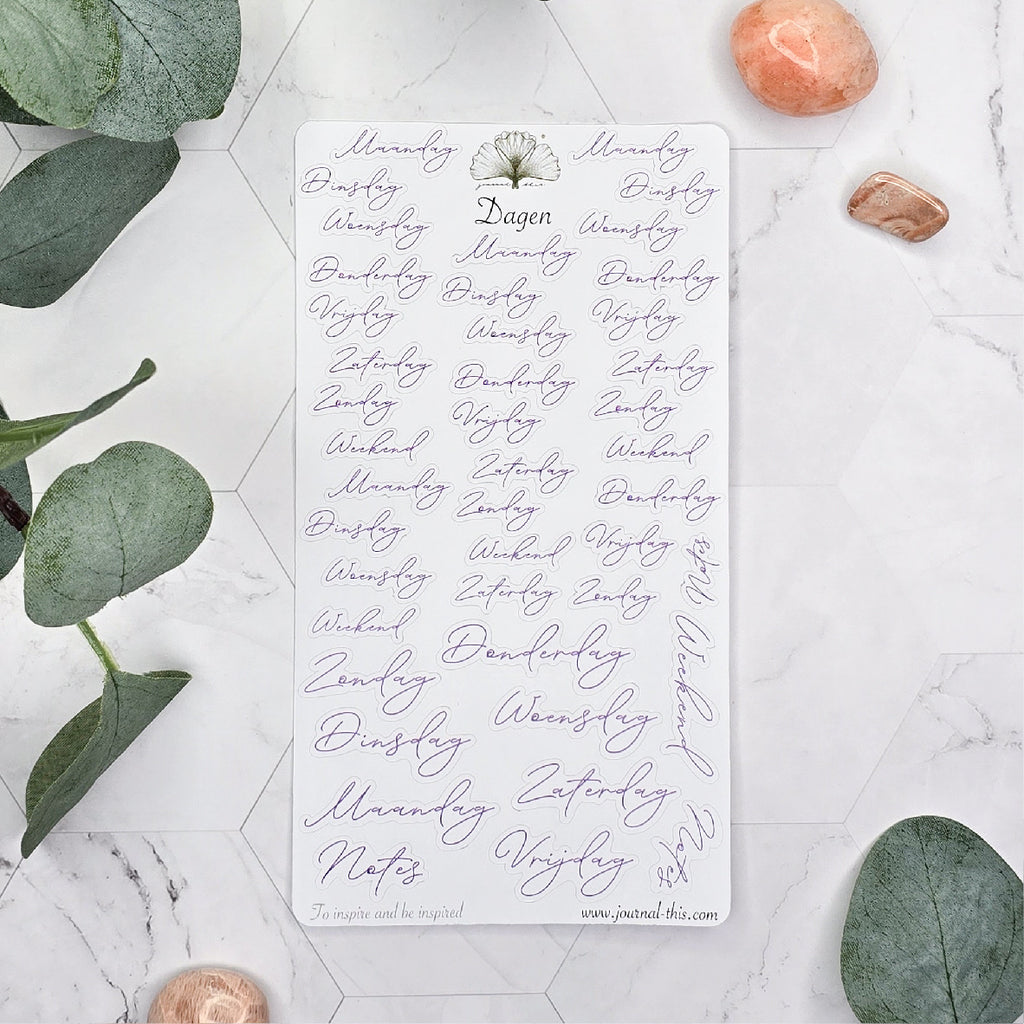 Maandag Maandag
Dinsdag Dinsdag
Dagen
Woensdag Woensdag
Maandag
Donderdag Donderdag
Dinsdag
Vrijdag Vrijdag
Woensdag
Zaterdag Zaterdag
Donderdag
Zondag Zondag
Vrijdag
Weekend Weekend
Zaterdag
Maandag Donderdag
Zondag
Dinsdag Vrijdag
Weekend Notes
Woensdag Zaterdag Zondag
Weekend
Donderdag
Zondag Weekend
Woensdag
Dinsdag
Zaterdag
Maandag
Notes Vrijdag Notes
To inspire and be inspired www.journal-this.com